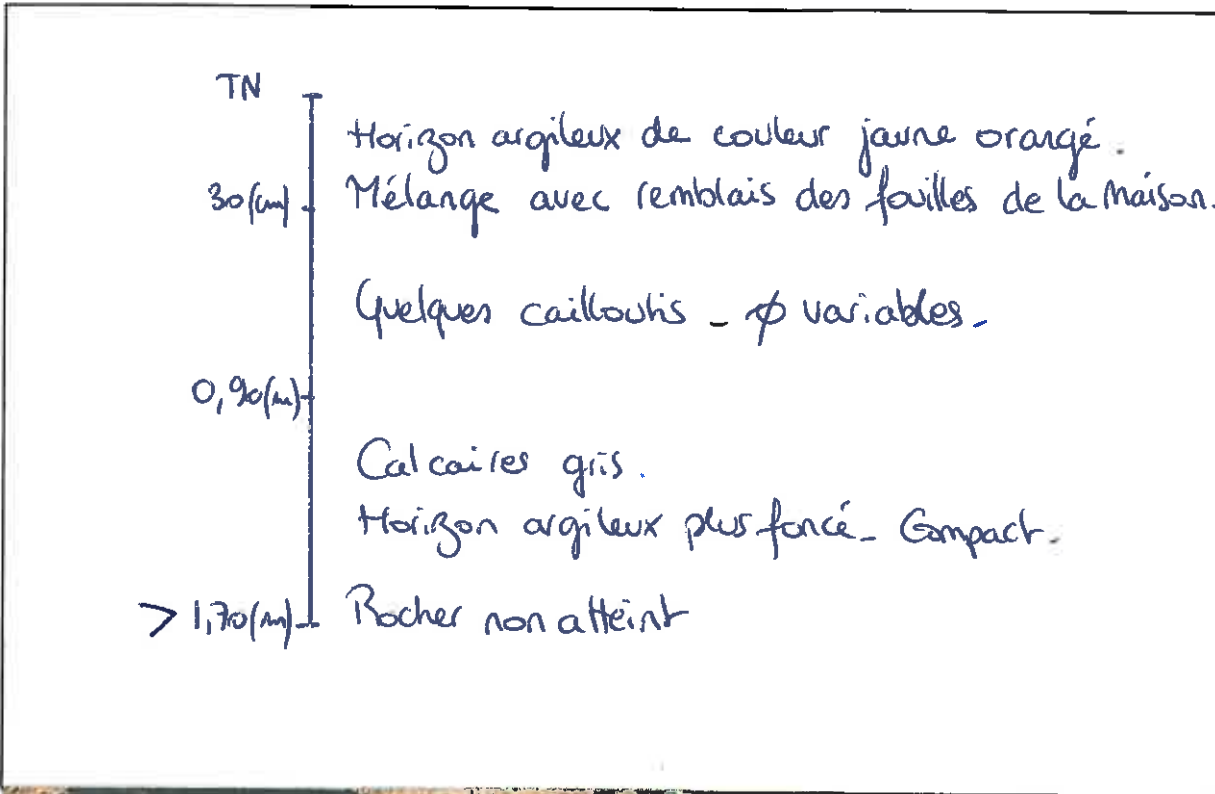 TN
Horizon argileux de couleur jaune orangé.
30(cm) Mélange avec remblais des fouilles de la Maison.
Quelques cailloutis - φ variables.
0,90(m)
Calcaires gris.
Horizon argileux plus foncé - Compact.
> 1,70(m) Rocher non atteint